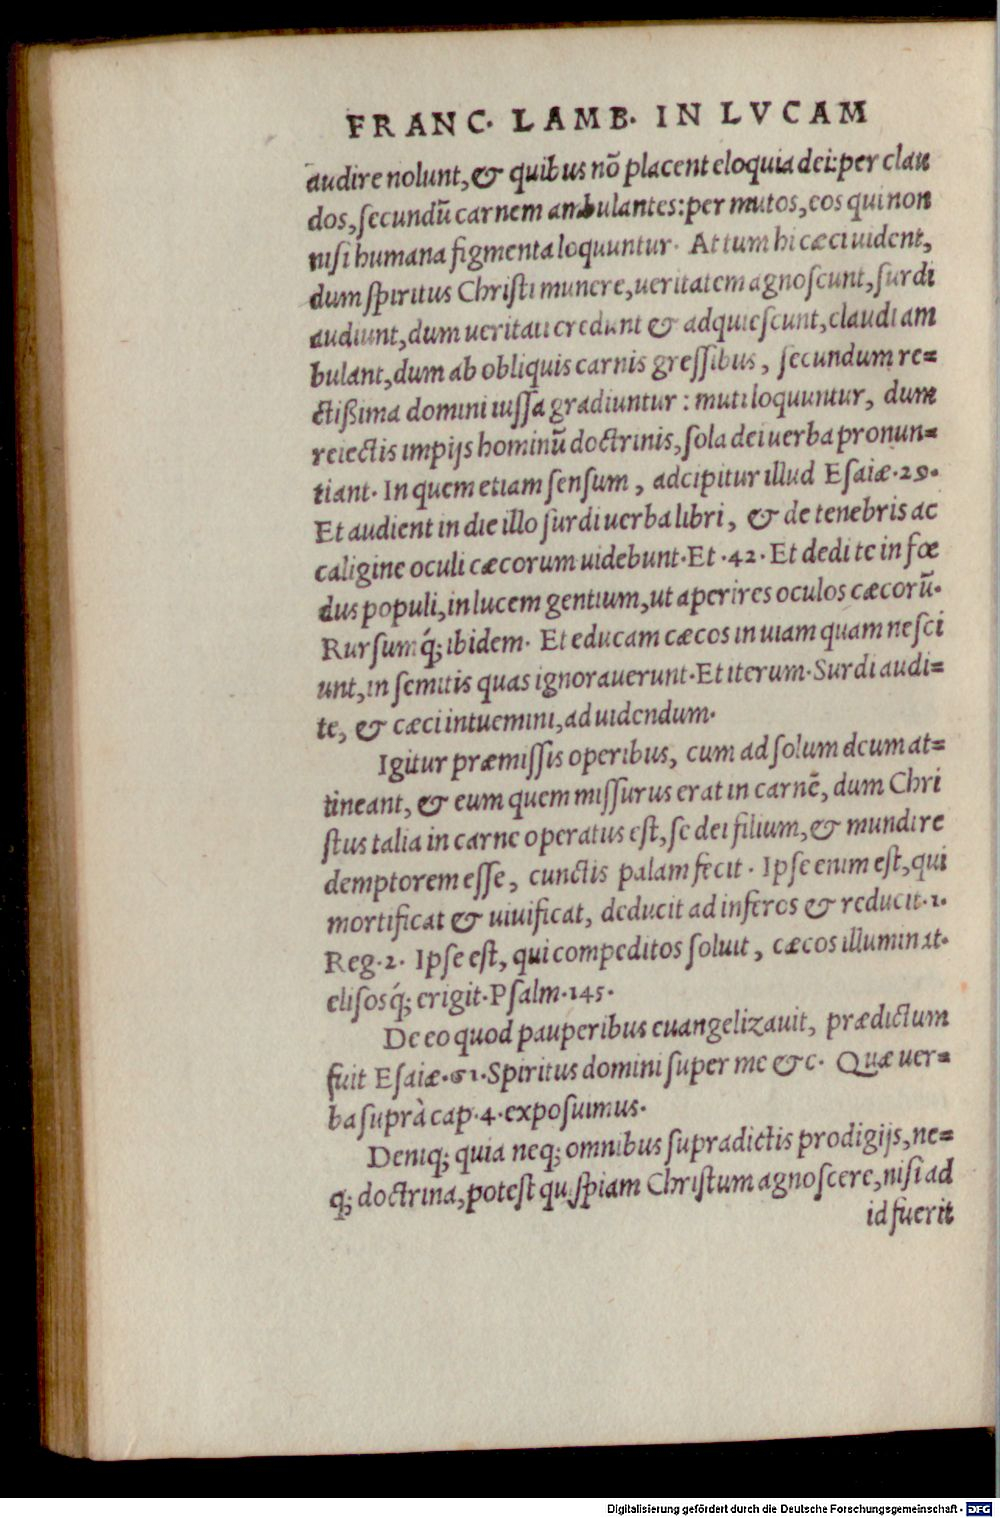 FRANC. LAMB. IN LVCAM
audire nolunt, & quibus nõ placent eloquia dei: per clau
dos, ſecundũ carnem ambulantes: per mutos, eos qui non
niſi humana figmenta loquuntur. At tum hi cæci uident,
dum ſpiritus Chriſti munere, ueritatem agnoſcunt, ſurdi
audiunt, dum ueritati credunt & adquieſcunt, claudi am
bulant, dum ab obliquis carnis greſſibus, ſecundum re=
ctißima domini iuſſa gradiuntur: muti loquuntur, dum
reiectis impijs hominũ doctrinis, ſola dei uerba pronun=
tiant. In quem etiam ſenſum, adcipitur illud Eſaiæ.29.
Et audient in die illo ſurdi uerba libri, & de tenebris ac
caligine oculi cæcorum uidebunt. Et .42. Et dedi te in fœ
dus populi, in lucem gentium, ut aperires oculos cæcorũ.
Rurſumq́; ibidem. Et educam cæcos in uiam quam neſci
unt, in ſemitis quas ignorauerunt. Et iterum. Surdi audi=
te, & cæci intuemini, ad uidendum.
Igitur præmiſſis operibus, cum ad ſolum deum at=
tineant, & eum quem miſſurus erat in carnẽ, dum Chri
ſtus talia in carne operatus eſt, ſe dei filium, & mundi re
demptorem eſſe, cunctis palam fecit. Ipſe enim eſt, qui
mortificat & uiuificat, deducit ad inferos & reducit.1.
Reg.2. Ipſe eſt, qui compeditos ſoluit, cæcos illuminat.
eliſosq́; erigit. Pſalm.145.
De eo quod pauperibus euangelizauit, prædictum
fuit Eſaiæ.61. Spiritus domini ſuper me &c. Quæ uer=
ba ſuprà cap.4. expoſuimus.
Deniq; quia neq; omnibus ſupradictis prodigijs, ne=
q; doctrina, poteſt quiſpiam Chriſtum agnoſcere, niſi ad
id fuerit
Digitalisierung gefördert durch die Deutsche Forschungsgemeinschaft - DFG